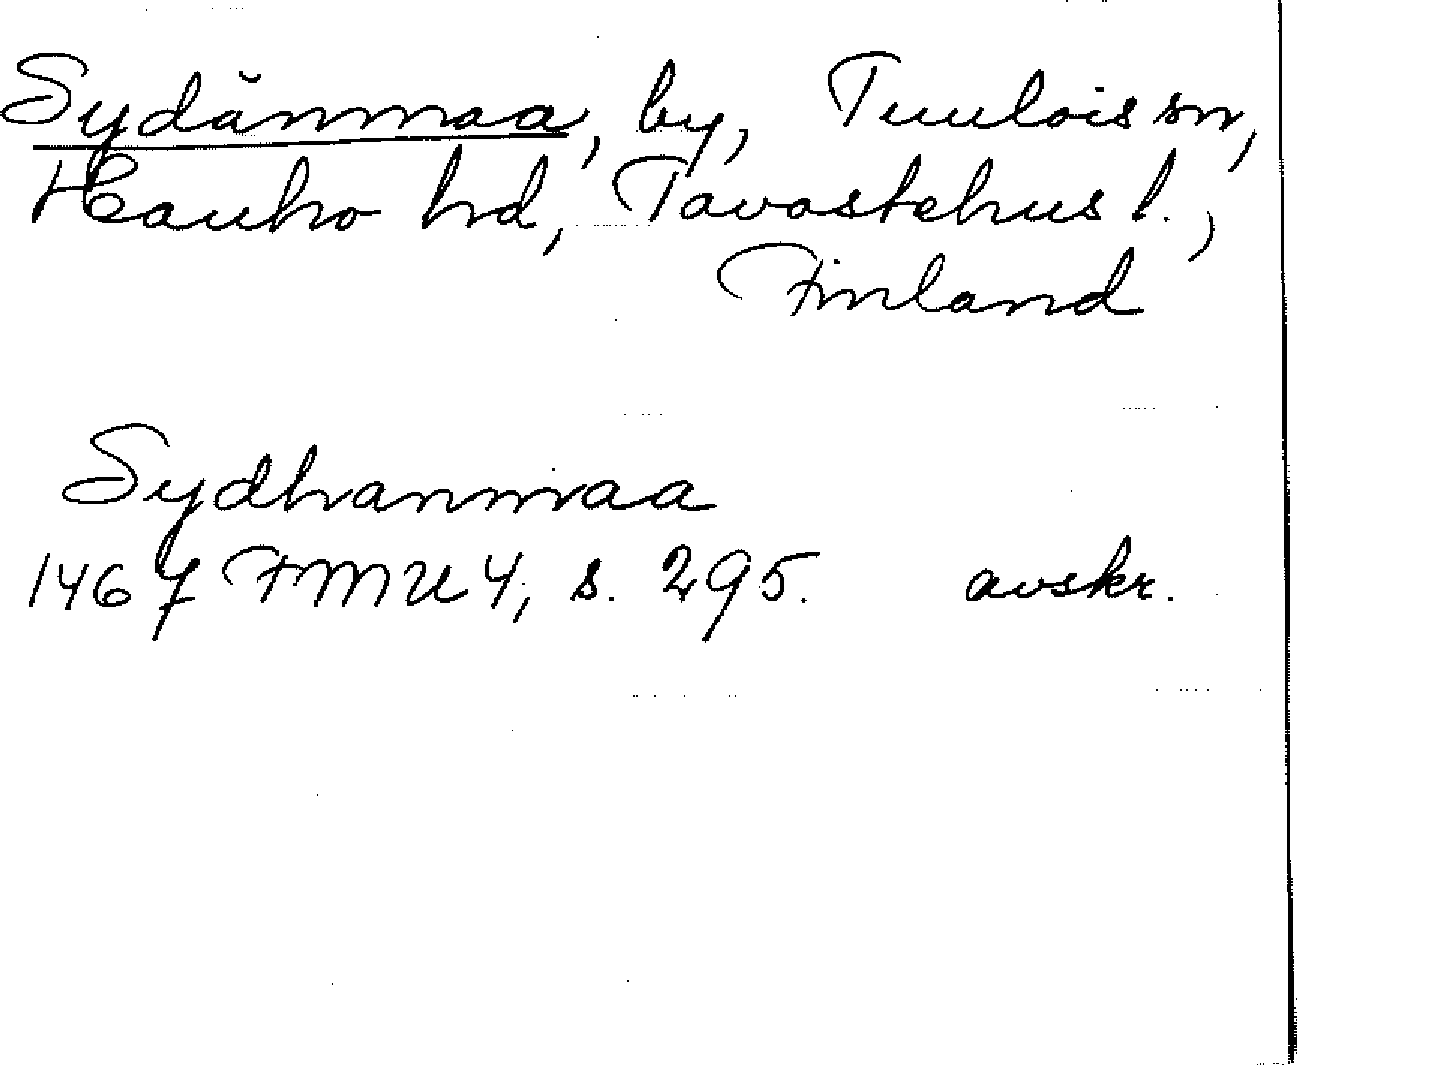 Sydänmaa, by, Tuulois sn,
Hauho hd, Tavastehus l.,
Finland
Sydhanmaa
1467 FMU 4, s. 295. avskr.